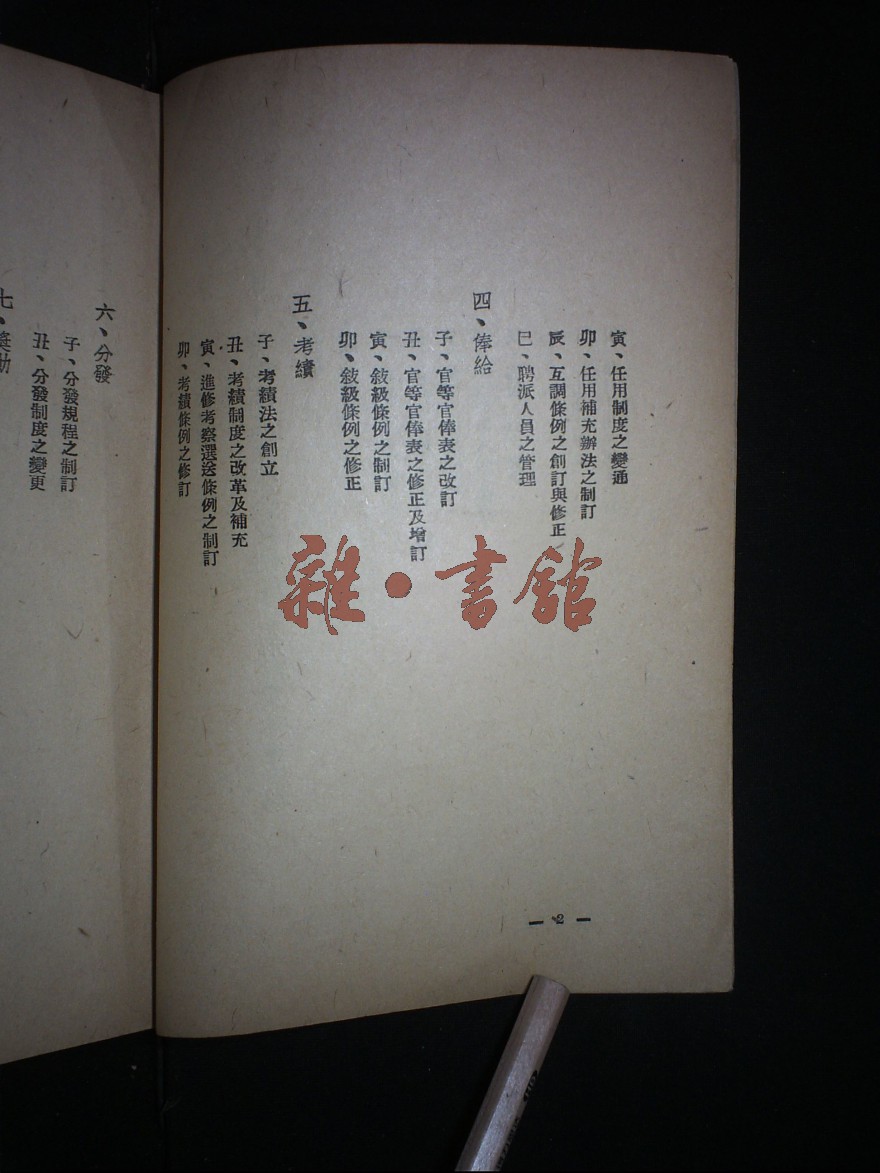 寅、任用制度之變通
卯、任用補充辦法之制訂
辰、互調條例之創訂與修正
巳、聘派人員之管理
四、俸給
子、官等官俸表之改訂
丑、官等官俸表之修正及增訂
寅、敍級條例之制訂
卯、敍級條例之修正
五、考績
子、考績法之創立
丑、考績制度之改革及補充
寅、進修考察選送條例之制訂
卯、考績條例之修訂
— 2 —
六、分發
子、分發規程之制訂
丑、分發制度之變更
七、獎勵
雜·書館